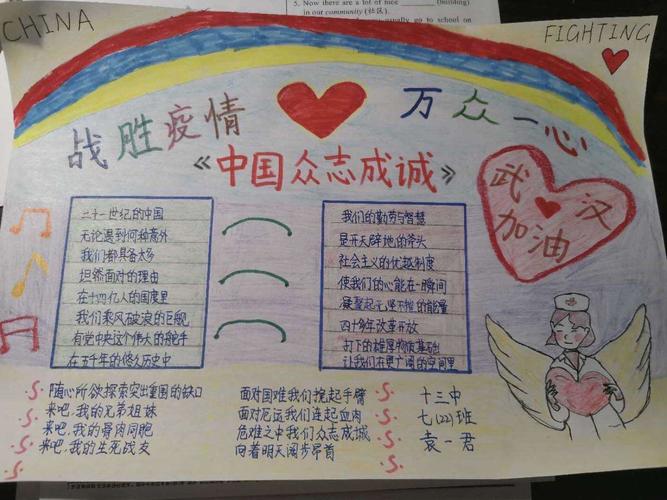 5. Now there are a lot of nice (building)
in our community (社区).
usually go to school on
CHINA
FIGHTING
战胜疫情
万众一心
《中国众志成诚》
武汉
加油
二十一世纪的中国
无论遇到何种意外
我们都具备太多
坦然面对的理由
在十四亿人的国度里
我们乘风破浪的巨舰
有党中央这个伟大的舵手
在五千年的悠久历史中
我们的勤劳与智慧
是开天辟地的斧头
社会主义的优越制度
使我们的心能在一瞬间
凝聚起无坚不摧的能量
四十多年改革开放
打下的雄厚物质基础
让我们在更广阔的空间里
随心所欲探索突出重围的缺口
来吧,我的兄弟姐妹
来吧,我的骨肉同胞
来吧,我的生死战友
面对国难我们挽起手臂
面对厄运我们连起血肉
危难之中我们众志成城
向着明天阔步昂首
十三中
七(22)班
袁一君